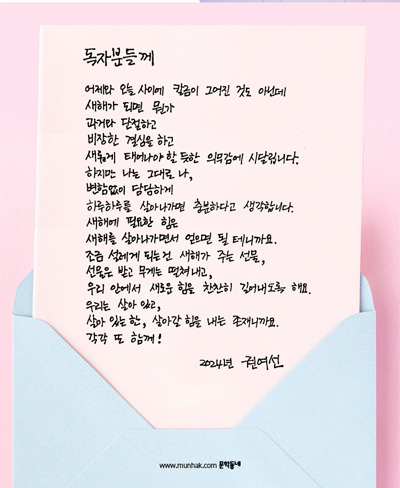 독자분들께
어제와 오늘 사이에 칼금이 그어진 것도 아닌데
새해가 되면 뭔가
과거와 단절하고
비장한 결심을 하고
새롭게 태어나야 할 듯한 의무감에 시달립니다.
하지만 나는 그대로 나,
변함없이 담담하게
하루하루를 살아나가면 충분하다고 생각합니다.
새해에 필요한 힘은
새해를 살아나가면서 얻으면 될 테니까요.
조금 설레게 되는건 새해가 주는 선물,
선물은 받고 무게는 떨쳐내고,
우리 안에서 새로운 힘을 찬찬히 길어내도록 해요.
우리는 살아 있고,
살아 있는 한, 살아갈 힘을 내는 존재니까요.
각각 또 함께!
2024년 권여선
www.munhak.com 문학동네